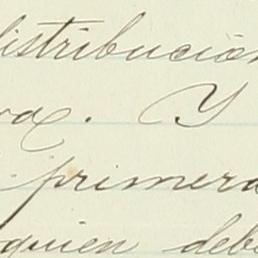 distribución
vox. Y
primera
quien debe